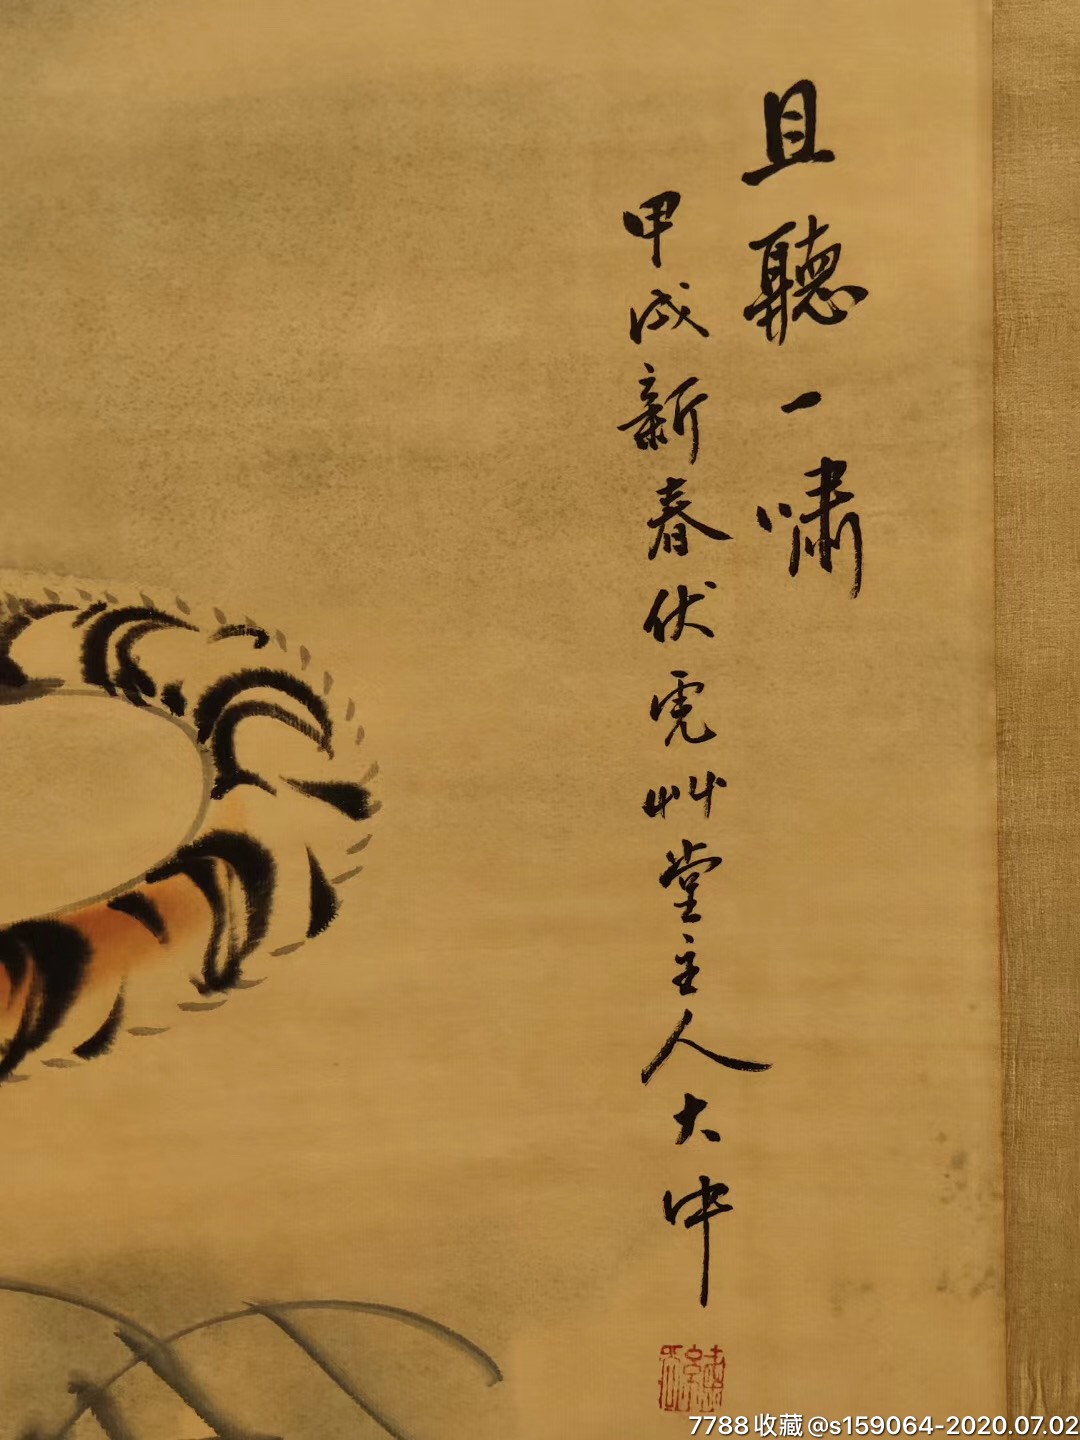 且聽一嘯
甲戌新春伏虎艸堂主人大中
7788收藏@s159064-2020.07.02